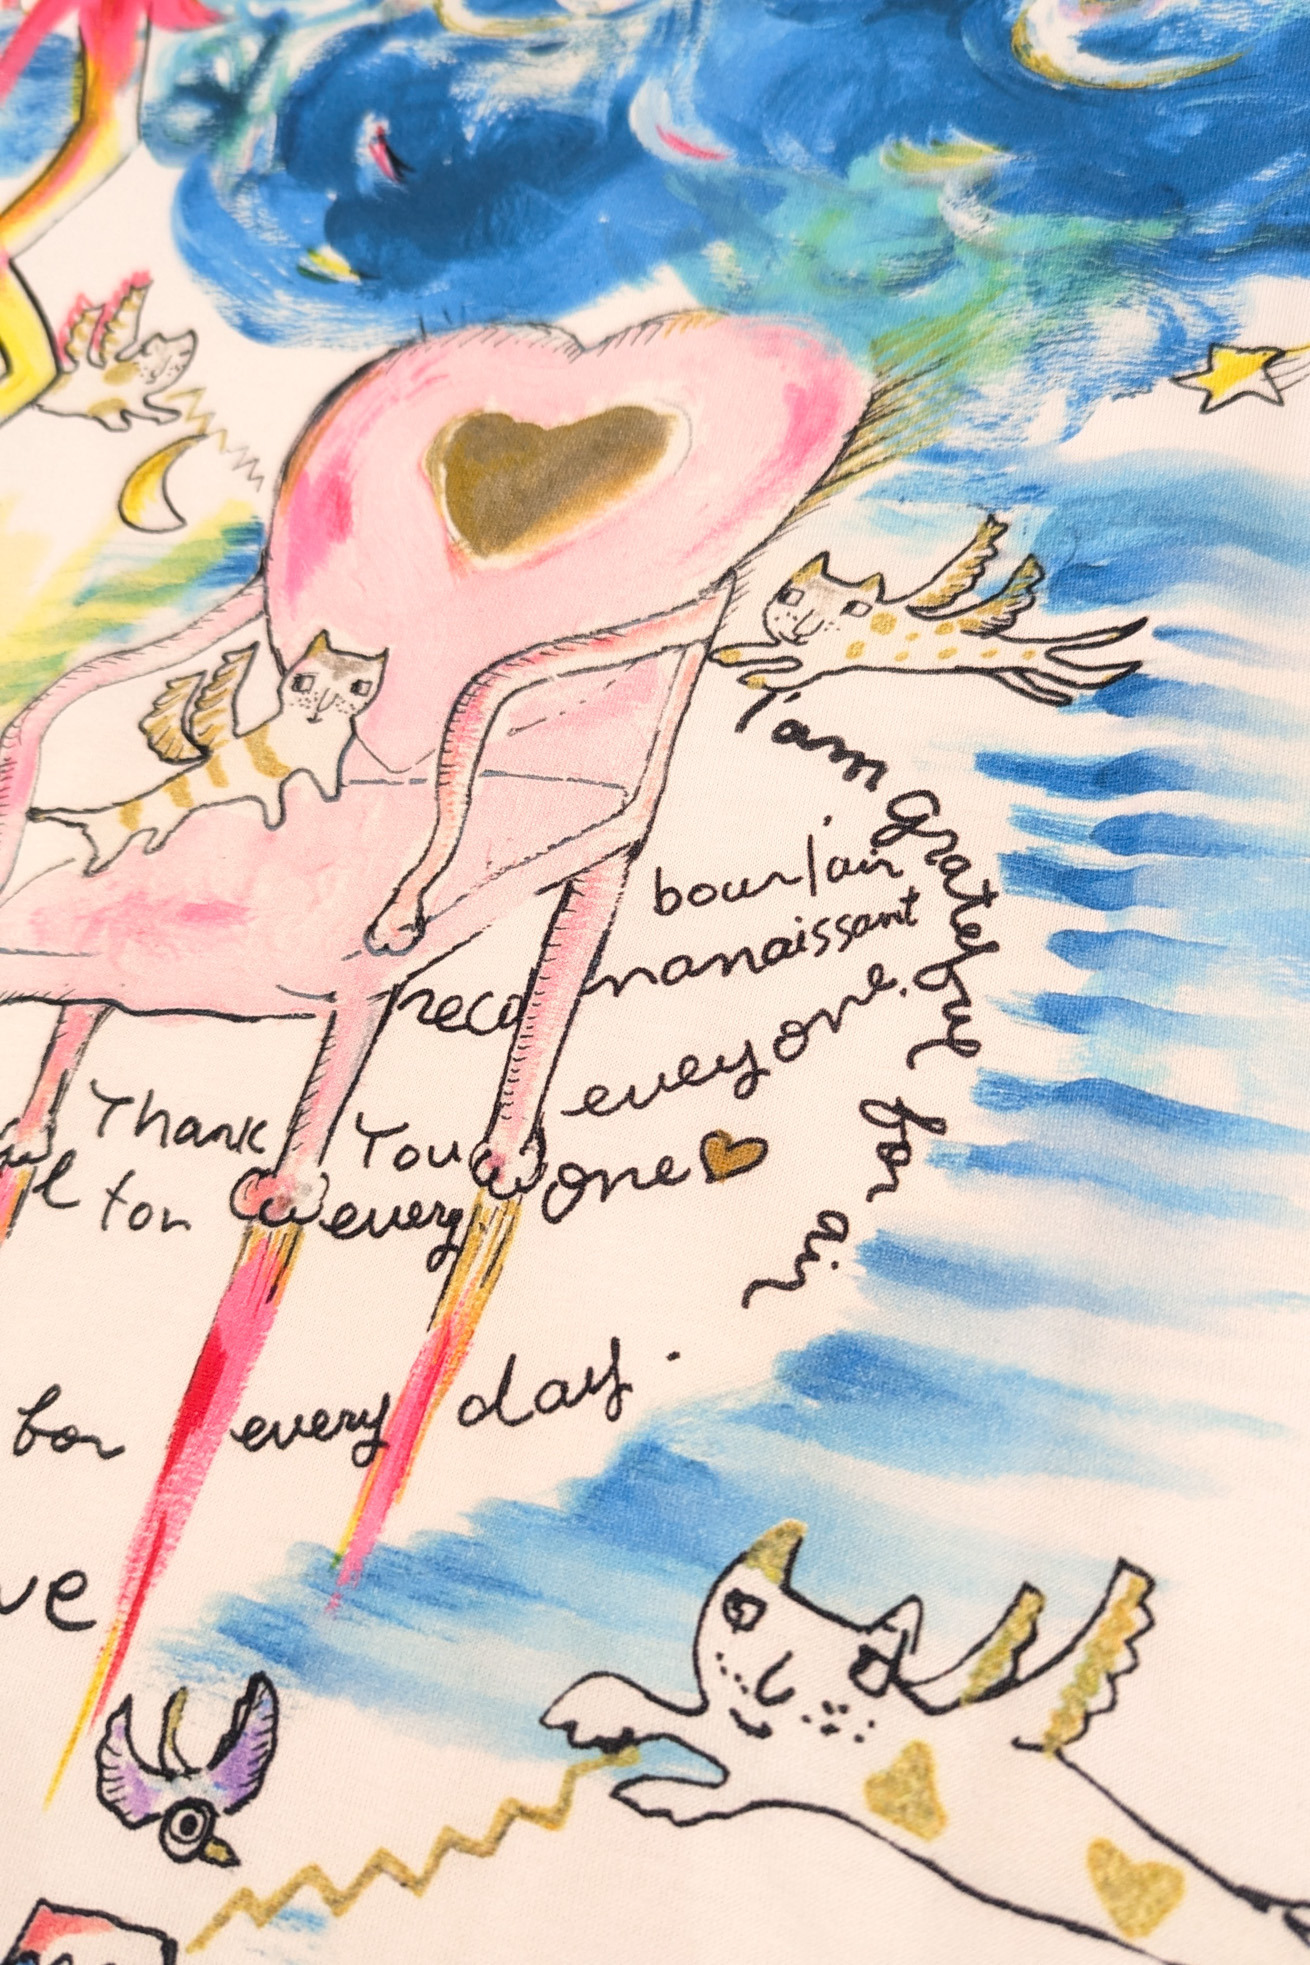 I'am grateful for air
pour l'air
reconnaissant
everyone.
Thank You
for every one
for every day.
ve